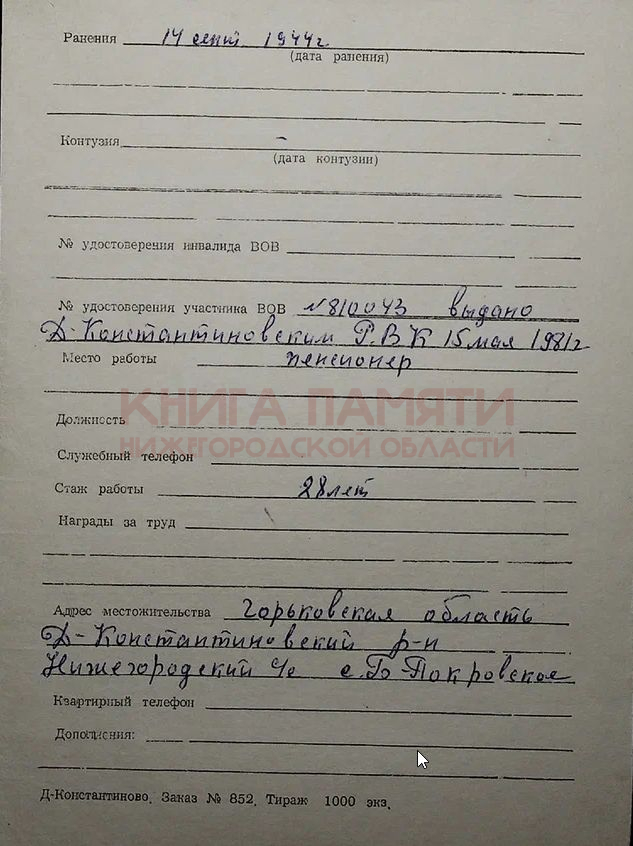 Ранения 14 сент 1944г.
(дата ранения)
Контузия –
(дата контузии)
№ удостоверения инвалида ВОВ
№ удостоверения участника ВОВ №810043 выдано
Д-Константиновским Р.В.К 15 мая 1981г
Место работы пенсионер
КНИГА ПАМЯТИ
Должность
НИЖЕГОРОДСКОЙ ОБЛАСТИ
Служебный телефон
Стаж работы 28 лет
Награды за труд
Адрес местожительства Горьковская область
Д-Константиновский р-н
Нижегородский с/с с. Б-Покровское
Квартирный телефон
Дополнения:
Д-Константиново. Заказ № 852. Тираж 1000 экз.